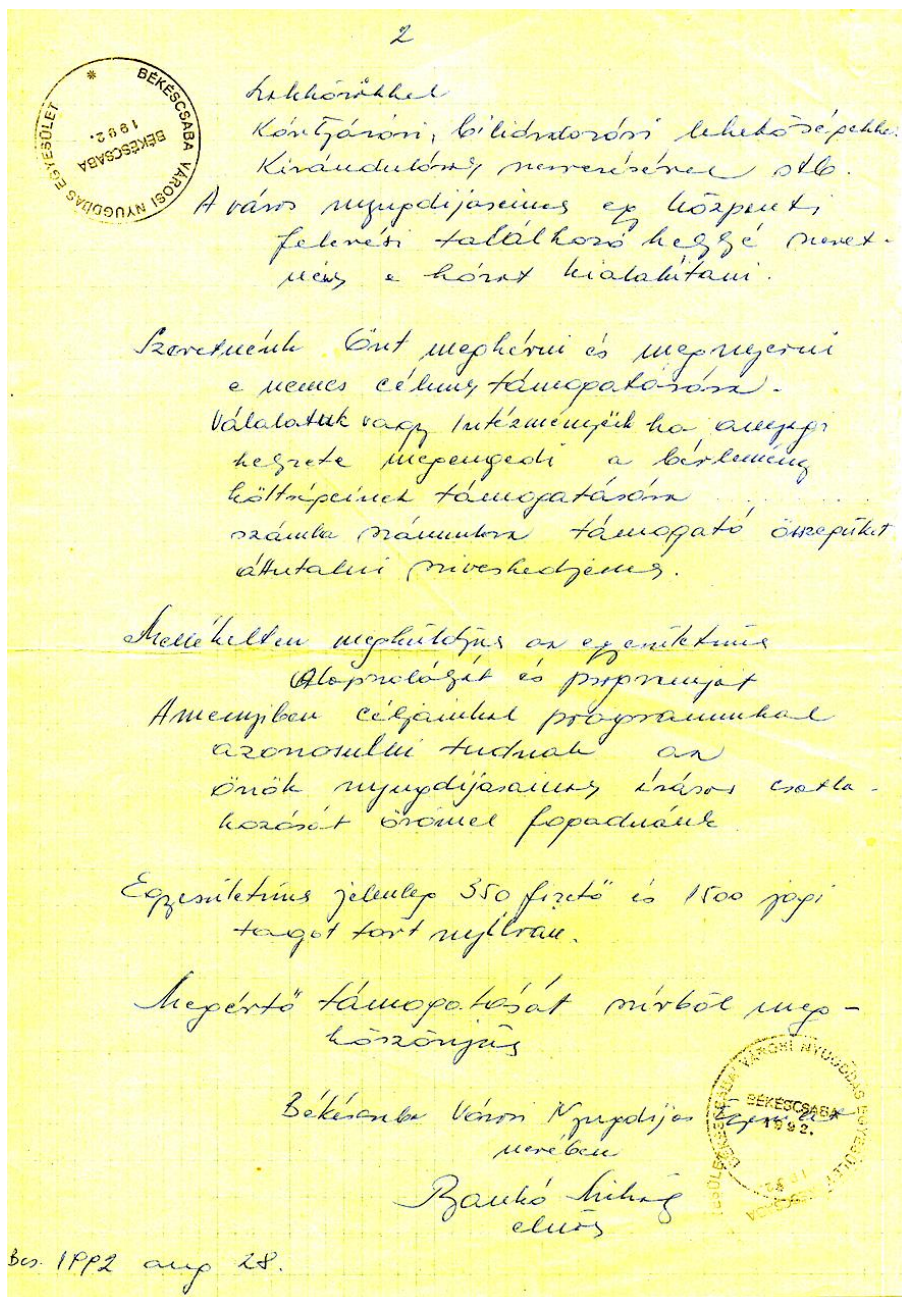 2
BÉKÉSCSABA VÁROSI NYUGDÍJAS EGYESÜLET
BÉKÉSCSABA
1992.
szakkörökkel
Kártyázási, biliárdozási lehetőségekkel
Kirándulások szervezésével stb.
A város nyugdíjasainak egy központi
felevési találkozó hellyé szeret-
nénk e házat kialakítani.
Szeretnénk Önt megkérni és megnyerni
e nemes célunk támogatására.
Válalatuk vagy Intézményük ha anyagi
helyzete megengedi a bérlemény
költségeinek támogatására
számla számunkra támogató összegüket
átutalni sziveskedjenek.
Mellékelten megküldjük az egyesületünk
Alapszabályát és programját
Amenyiben céljainkal programunkal
azonosulni tudnak az
önök nyugdíjasainak írásos csatla-
kozását örömel fogadnánk
Egyesületünk jelenleg 350 fizető és 1500 jogi
tagot tart nyílván.
Megértő támogatását szívből meg-
köszönjük
Békéscsaba Városi Nyugdíjas Egyesület
nevében
Bankó Mihály
elnök
BÉKÉSCSABA VÁROSI NYUGDÍJAS EGYESÜLET
BÉKÉSCSABA
1992.
Bcs. 1992 aug 28.